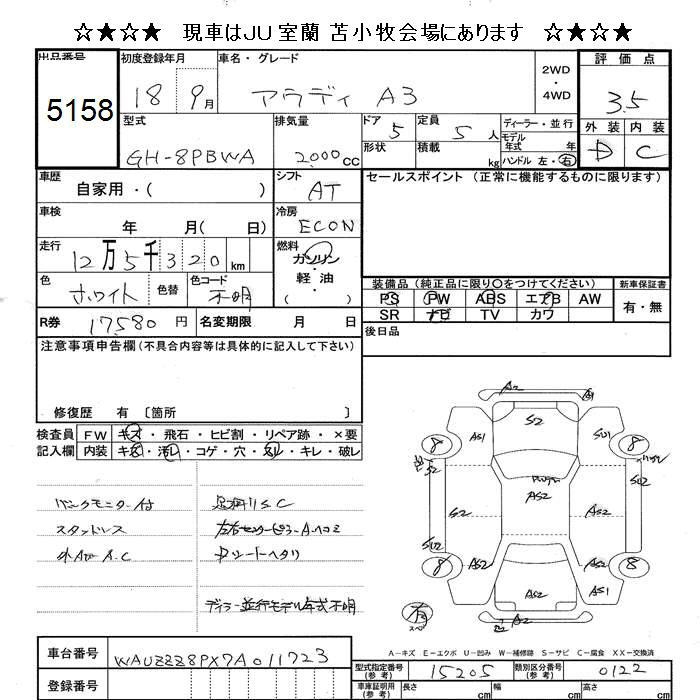 ☆★☆★ 現車はJU室蘭 苫小牧会場にあります ☆★☆★
出品番号
5158
初度登録年月
18 9月
車名・グレード
アウディ A3
2WD
・
4WD
評価点
3.5
型式
GH-8PBWA
排気量
2000cc
ドア
5
形状
定員
5人
積載
kg
ディーラー・並行
モデル
年式 年
ハンドル 左・右
外装 内装
D C
車歴
自家用・( )
シフト
AT
セールスポイント (正常に機能するものに限ります)
車検
年 月( 日)
冷房
ECON
走行
12万5千320km
燃料
ガソリン
・
軽油
( )
色
ホワイト
色替
色コード
不明
装備品 (純正品に限り○をつけてください)
新車保証書
PS PW ABS エアB AW
有・無
SR ナビ TV カワ
R券 17580円
名変期限 月 日
後日品
注意事項申告欄(不具合内容等は具体的に記入して下さい)
修復歴 有 〔箇所 〕
検査員 FW キズ・飛石・ヒビ割・リペア跡・×要
記入欄 内装 キズ・汚レ・コゲ・穴・スレ・キレ・破レ
バックモニター付
スタッドレス
外AW A.C
左右センターピラーA・ヘコミ
Dシートヘタリ
ディラー並行モデル年式不明
A2
S2
AS1
SU1
8
8
S2
AS2
SU2
S2
AS2
SU2
AS2
AS2
8
8
AS2
AS1
AS2
A-キズ E-エクボ U-凹み W-補修跡 S-サビ C-腐食 XX-交換済
車台番号
WAUZZZ8PX7A011723
登録番号
型式指定番号
(参考)
15205
類別区分番号
(参考)
0122
車庫証明用
(参考)
長さ
cm
幅
cm
高さ
cm